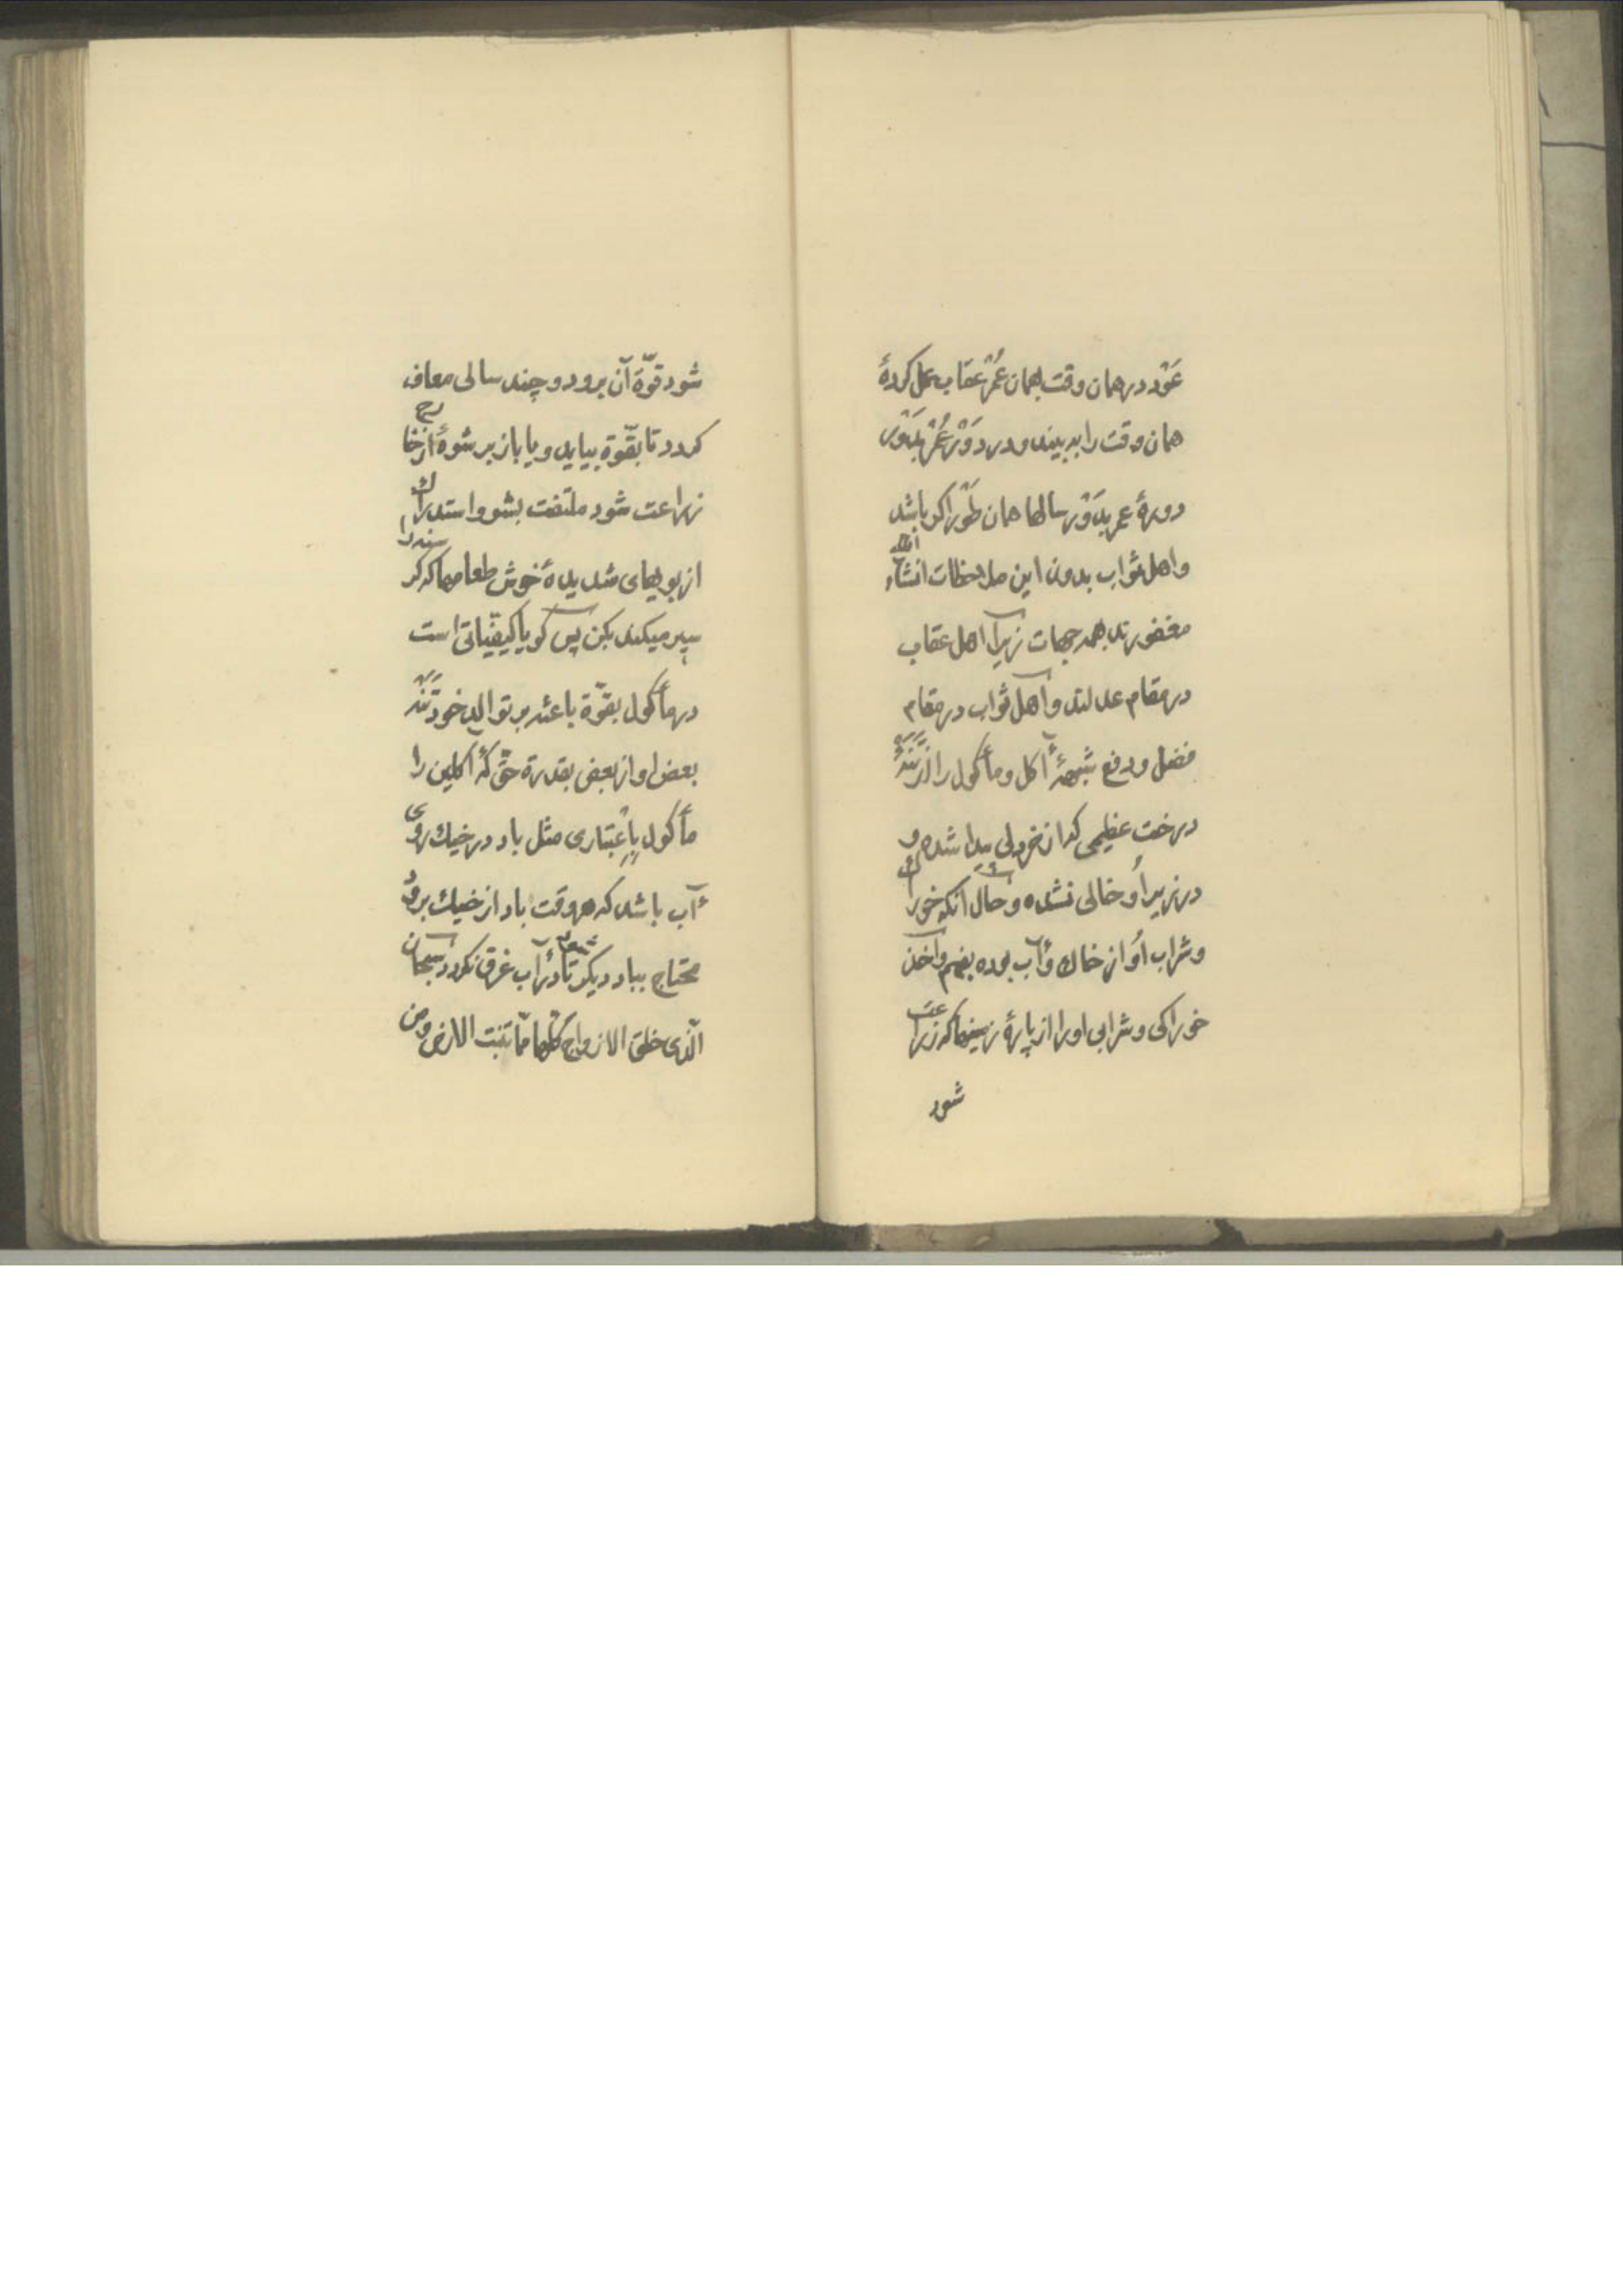 عَوْد در همان وقت بهمان عُمْر عقاب عمل کردهٔ
همان وقت را به بیند و در دَوْر عُمْر بدَوْر
دورهٔ عمر بدَوْر سالها همان طَوْر اکر باشد
واهل ثواب بدون این ملاحظات انشآء الله
مغفورند بهمه جهات زیرا اهل عقاب
در مقام عدلند و اهل ثواب در مقام
فضل و دفع شبههٔ آکل و مأکول را
درخت عظیمی که از خردلی پیدا شده و
در زیر اُو خالی نشده و حال آنکه خوراک
و شراب اُو از خاك و آب بوده بفهم و اخذ
خوراکی و شرابی او را از پارهٔ زمینها که زراعت
شود
شود قوّة آن برود و چند سالی معاف
کردد تا بقوّة بیاید و یا باز بر شوهٔ از خارج
زراعت شود ملتفت بشو و استدراك
از بویهای شدیدهٔ خوش طعامها که
سیر میکند بکن پس کویا کیفیّاتی است
در مأکول بقوّة باعثه بر توالد خود
بعض او از بعض بقدرة حقّ که آکلین را
مأکول باعْتباری مثل باد در خیك روی
آب باشد که هر وقت باد از خیك برود
محتاج بباد دیکر تا در آب غرق نکردد سبحان
الّذی خلق الازواج کلّها ممّا تنبت الارض ومن